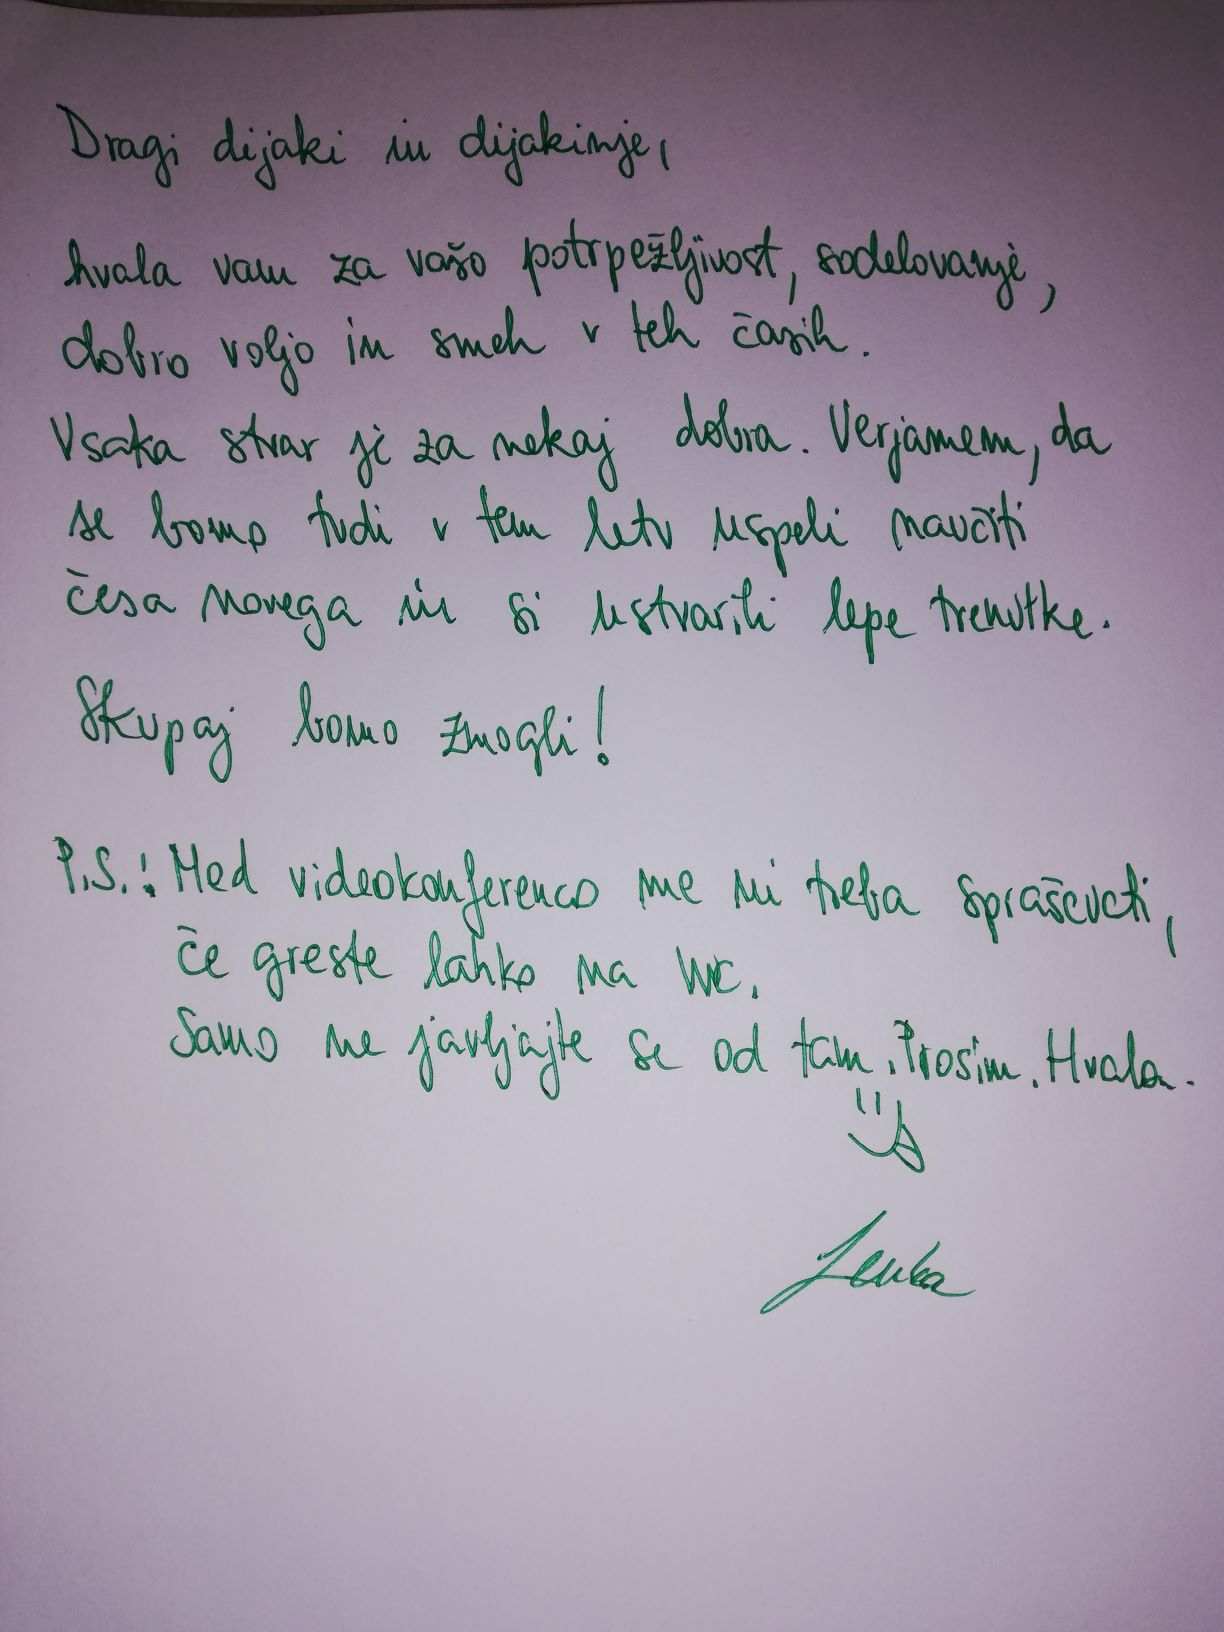 Dragi dijaki in dijakinje,
hvala vam za vašo potrpežljivost, sodelovanje,
dobro voljo in smeh v teh časih.
Vsaka stvar je za nekaj dobra. Verjamem, da
se bomo tudi v tem letu uspeli naučiti
česa novega in si ustvarili lepe trenutke.
Skupaj bomo zmogli!
P.S.: Med videokonferenco me ni treba spraševati,
če greste lahko na WC.
Samo ne javljajte se od tam. Prosim. Hvala.
Lenka